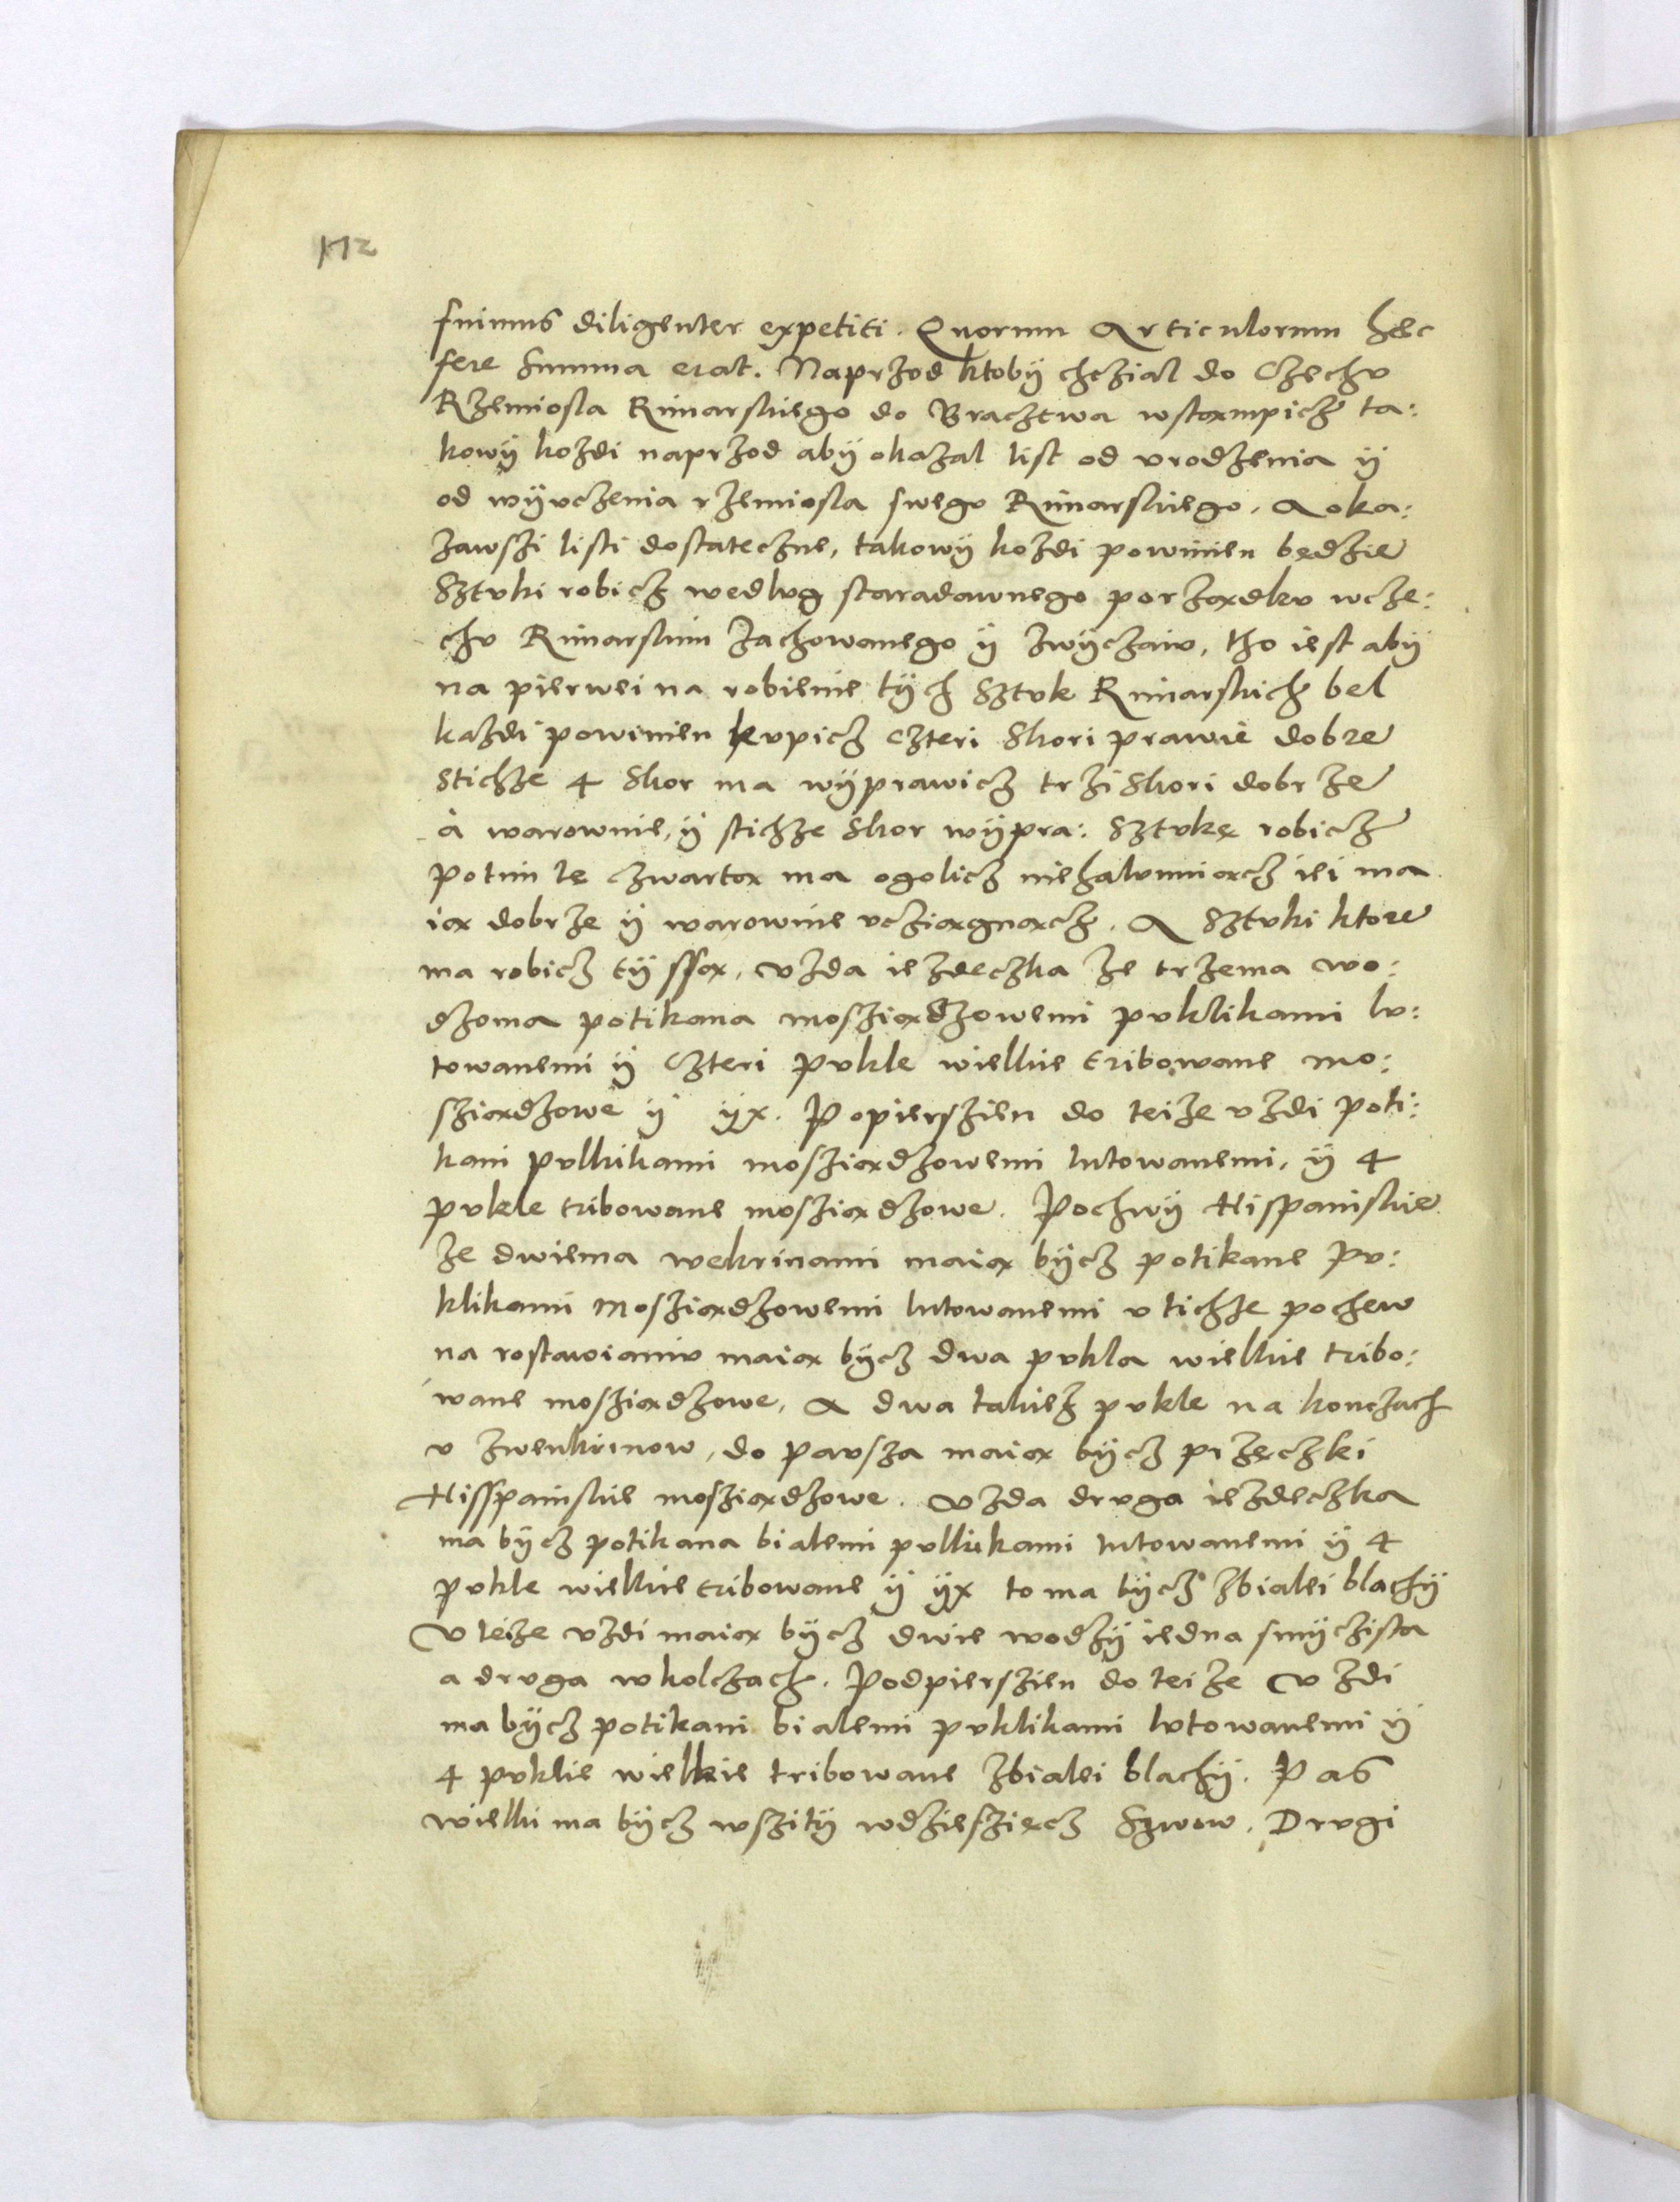 172
fuimus diligenter expetiti. Quorum Articulorum hec
fere summa erat. Naprzod ktobÿ chczial do Czechv
Rzemiosla Rimarskiego do Bractzwa wstaxmpicz ta:
kowÿ kozdi naprzod abÿ okazal list od vrodzenia ÿ
od wÿvczenia rzemiosla swego Rimarskiego. A oka:
zawszi listi dostateczne, takowÿ kozdi powinien będzie
Sztvki robicz wedlvg staradawnego porzaxdkv wcze:
chv Rimarskim zachowanego ÿ zwÿczaiv, tho iest abÿ
na pierwei na robienie tÿch Sztvk Rimarskich bel
kazdi powinien kvpicz Czteri Skori prawie dobre
Stichze 4 Skor ma wÿprawicz trzi Skori dobrze
à warownie, ÿ stichze Skor wÿpra: Sztvkę robicz
potim tę Czwartax ma ogolicz niehalvnniaxcz iei ma
iax dobrze ÿ warownie vcziaxgnaxcz. A Sztvki ktore
ma robicz tÿ ssax, vzda iezdeczka ze trzema wo:
dzoma potikana mosziaxdzowemi pvklikami lv:
towanemi ÿ Czteri pvkle wielkie tribowane mo:
sziaxdzowe ÿ ÿx. Popierszien do teize vzdi poti:
kani pvklikami mosziaxdzowemi lutowanemi, ÿ 4
pvkle tribowane mosziaxdzowe. Pochwÿ Hispaniskie
ze dwiema wekrinami maiax bÿcz potikane pv:
klikami mosziaxdzowemi lutowanemi v tichze pochew
na rostawianiv maiax bÿcz dwa pvkla wielkie tribo:
wane mosziaxdzowe, A dwa takiez pvkle na konczach
v zwenkrinow, do pavsza maiax bÿcz przęczki
Hisspanskie mosziaxdzowe. vzda drvga iezdeczka
ma bÿcz potikana bialemi pvklikami lutowanemi ÿ 4
pvkle wielkie tribowane ÿ ÿx to ma bÿcz zbialei blachÿ
v teize vzdi maiax bÿcz dwie wodzÿ iedna smÿczista
a drvga w kolczach. Podpierszien do teize vzdi
ma bÿcz potikani bialemi pvklikami lvtowanemi ÿ
4 pvklie wielkie tribowane zbialei blachÿ. Pas
wielki ma bÿcz wszitÿ wdzieszięcz Szwow. Drvgi